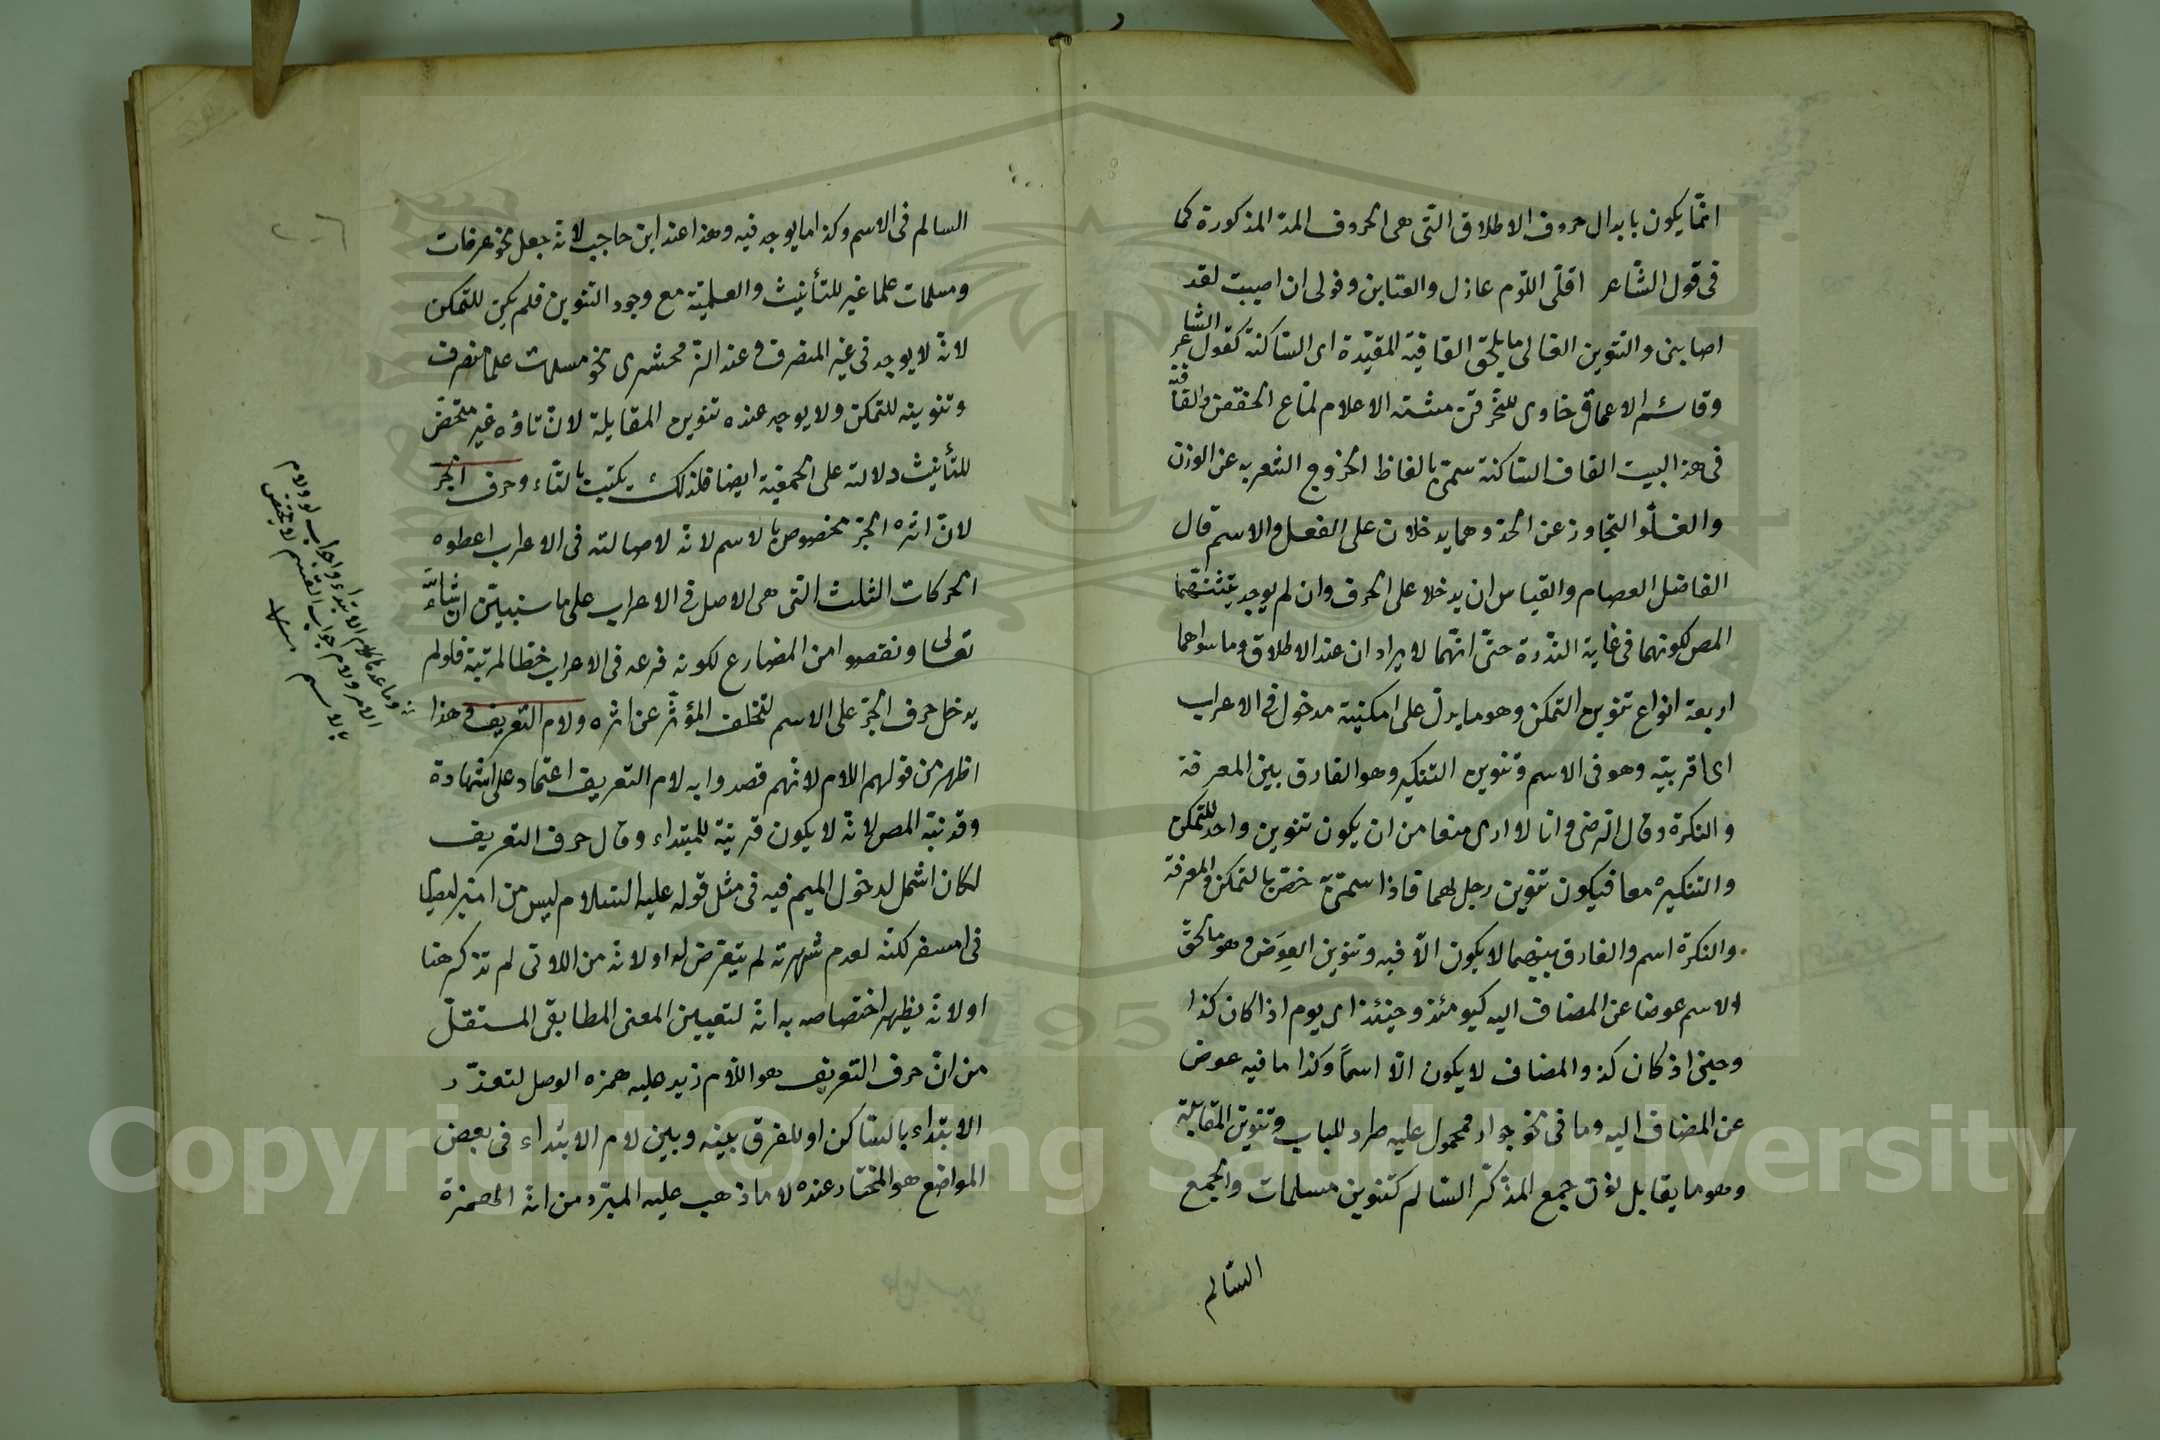 انمّا يكون بابدال حروف الاطلاق التى هى الحروف المد المذكورة كما
فى قول الشّاعر اقلّى اللّوم عاذل والعتابن وقولى ان اصبت لقد
اصابنى والتنوين الغالى ما يلحق القافية المقيّدة اى السّاكنة كقول الشاعر
وقاتم الاعماق خاوى المخترقن مشتبه الاعلام لماع الخفقن والقافة
فى هذا البيت القاف السّاكنة سمّى بالغاظ الخروج الشعر به عن الوزن
والغلّو التجاوز عن الحد وهما يدخلان على الفعل والاسم قال
الفاضل العصام والقياس ان يدخلا على الحرف وان لم يوجد
المص لكونهما فى غاية النّدرة حتّى انّهما لا يرادان عند الاطلاق وما سواهما
اربعة انواع تنوين التمكن وهو ما يدل على امكنية مدخول فى الاعراب
اى اقربيّه وهو فى الاسم وتنوين التنكير وهو الفارق بين المعرفة
والنكرة وقال الرضى وانا لا ارى منعا من ان يكون تنوين واحد للتمكن
والتنكير معا فيكون تنوين رجل لهما فاذا سمّى به خصّ بالتمكن والمعرفة
والنكرة اسم والفارق بينهما لا يكون الّا فيه وتنوين العِوَض وهو ما لحق
الاسم عوضا عن المضاف اليه كيومئذ وحينئذ اى يوم اذا كان كذا
وحين اذ كان كذ والمضاف لا يكون الّا اسماً وكذا ما فيه عوض
عن المضاف اليه وما فى نحو جوار محمول عليه طرد للباب وتنوين المقابلة
وهو ما يقابل نون جمع المذكّر السّالم كتنوين مسلمات والجمع
السّالم
السالم فى الاسم وكذا ما يوجد فيه وهذا عند ابن حاجب لانه جعل نحو عرفات
ومسلمات علما غير للتأنيث والعلميّة مع وجود التنوين فلم يكن للتمكن
لانه لا يوجد فى غير المنصرف وعند الزمحشرى نحو مسلمات علما منصرف
وتنوينه للتمكن ولا يوجد عنده تنوين المقابلة لانّ تاؤه غير متمحّض
للتأنيث دلالته على الجمعية ايضا فلذلك يكتب بالتّاء وحرف الجرّ
لانّ اثره الجرّ مخصوص بالاسم لانه لاصالته فى الاعراب اعطوه
الحركات الثلث التى هى الاصل فى الاعراب على ما سنبيّن ان شاء الله
تعالى ونقصوا من المضارع لكونه فرعه فى الاعراب حطا لمرتبة فلو لم
يدخل حرف الجرّ على الاسم لتخلف المؤثّر عن اثره ولام التعريف وهذا
اظهر من قولهم اللام لانهم قصدوا به لام التعريف اعتماد على شهادة
وقد نبّه المص لانه لا يكون قرينة للمبتداء وقال حرف التعريف
لكان اشمل لدخول الميم فيه فى مثل قوله عليه السّلام ليس من امبر امصيام
فى امسفر لكنّه لعدم شهرته لم يتعرّض له او لانه من اللاتى لم تذكر هنا
او لانه يظهر اختصاصه به انه لتعيين المعنى المطابقى المستقلّ
من انّ حرف التعريف هو اللام زيد عليه همزه الوصل لتعذّر
الابتداء بالسّاكن او للفرق بينه وبين لام الابتداء فى بعض
المواضع هو المختار عنده لا ما ذهب عليه المبرّد من انه الهمزة
وما عداه لام الابتداء وجواب لو ولام
الامر ولام جواب القسم لا يختص
بالاسم
Copyright © King Saud University
1957